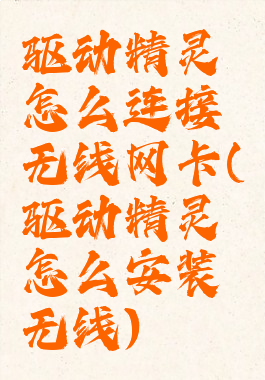 驱动精灵
怎么连接
无线网卡(
驱动精灵
怎么安装
无线)